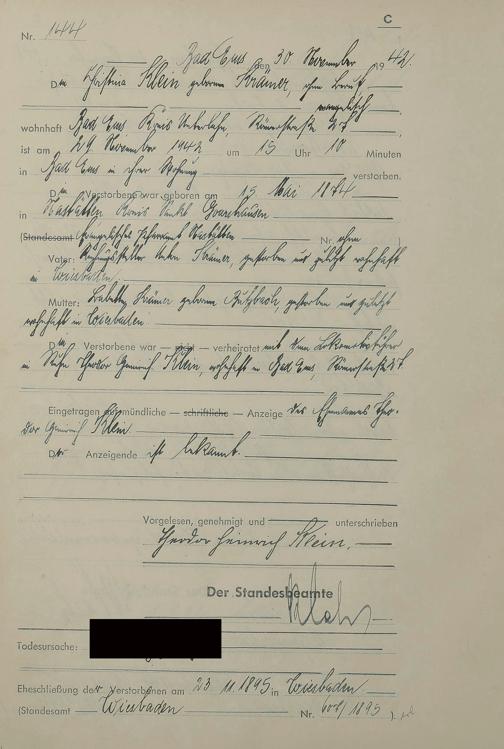 C
Nr. 144
Bad Ems, den 30 November 1942.
Die Christina Klein geborene Krämer, ohne Beruf
evangelisch
wohnhaft Bad Ems Kreis Unterlahn, Römerstraße 27
ist am 29. November 1942 um 15 Uhr 10 Minuten
in Bad Ems in ihrer Wohnung verstorben.
Die Verstorbene war geboren am 15 Mai 1874
in Nastätten Kreis Sankt Goarshausen
(Standesamt Evangelisches Pfarramt Nastätten Nr. ohne )
Vater: Krämer, gestorben und zuletzt wohnhaft
in Wiesbaden.
Mutter: Babette Krämer geborene Butzbach, gestorben und zuletzt
wohnhaft in Wiesbaden
Die Verstorbene war — nicht — verheiratet mit dem Lokomotivführer
in Ruhe Theodor Heinrich Klein, wohnhaft in Bad Ems, Römerstraße 27
Eingetragen auf mündliche — schriftliche — Anzeige des Ehemannes Theo-
dor Heinrich Klein
Der Anzeigende ist bekannt.
Vorgelesen, genehmigt und unterschrieben
Theodor Heinrich Klein.
Der Standesbeamte
Todesursache:
Eheschließung der Verstorbenen am 23 11. 1895 in Wiesbaden
(Standesamt Wiesbaden Nr. /1895 ).